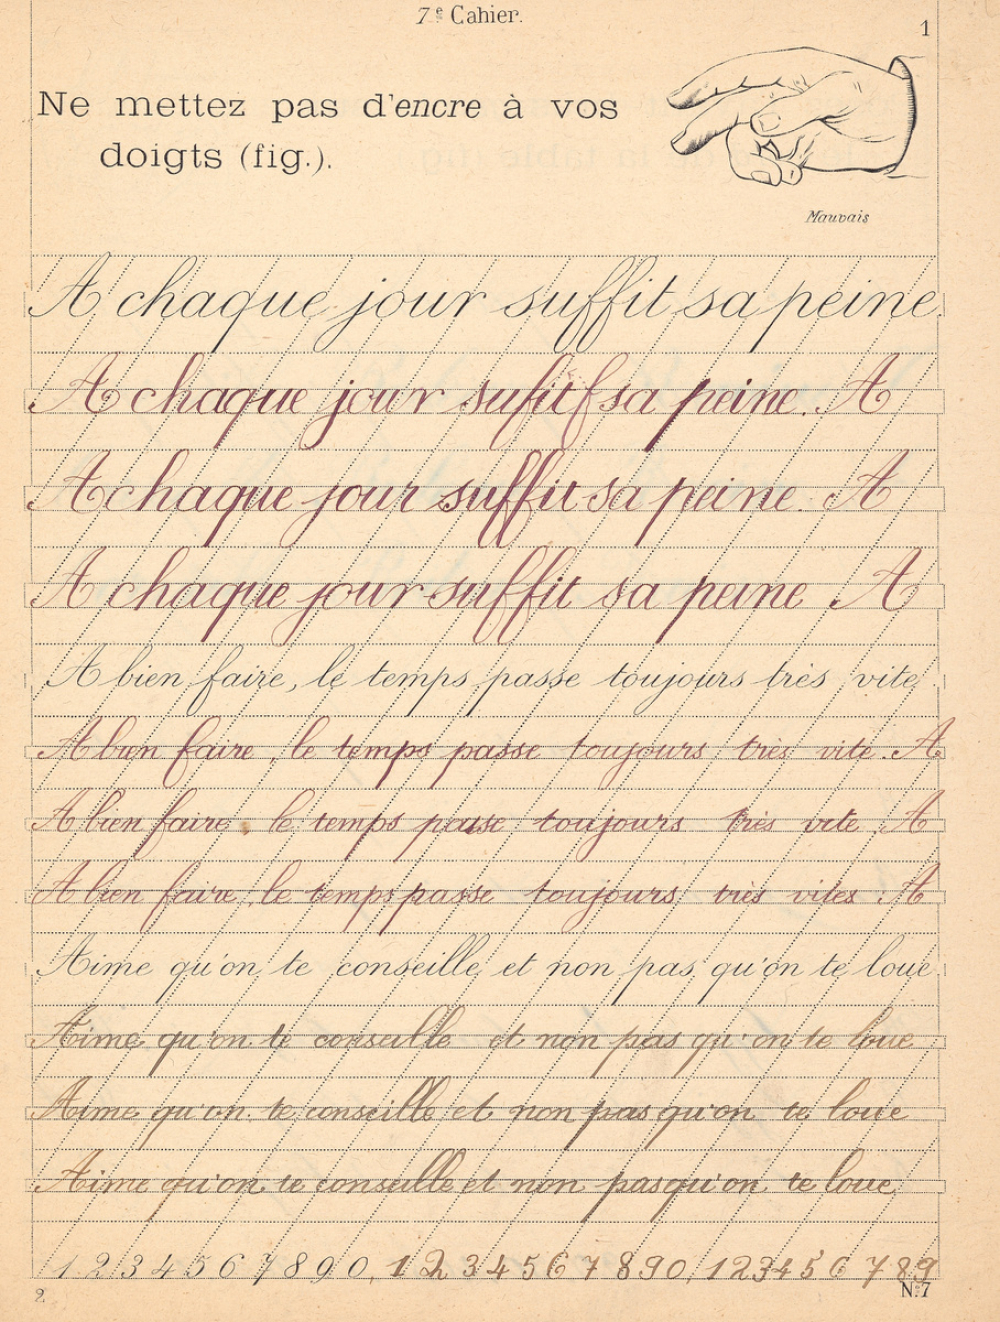 7e Cahier.
1
Ne mettez pas d'encre à vos
doigts (fig.).
Mauvais
A chaque jour suffit sa peine.
A chaque jour sufitf sa peine. A
A chaque jour suffit sa peine. A
A chaque jour suffit sa peine A
A bien faire, le temps passe toujours très vite.
A bien faire, le temps passe toujours très vite. A
A bien faire, le temps passe toujours très vite A
A bien faire, le temps passe toujours très vites A
Aime qu'on te conseille et non pas qu'on te loue.
Aime qu'on te conseille et non pas qu'on te loue
Aime qu'on te conseille et non pas qu'on te loue
Aime qu'on te conseille et non pas qu'on te loue
1 2 3 4 5 6 7 8 9 0, 1 2 3 4 5 6 7 8 9 0, 1 2 3 4 5 6 7 8 9
2
No 7